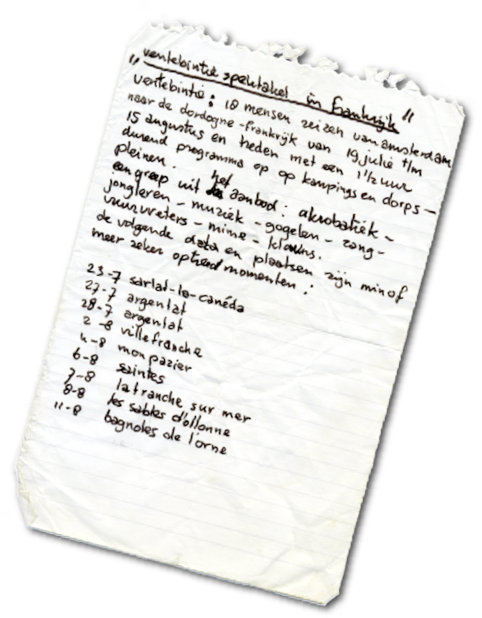 "ventebintie spektakel in frankrijk"
ventebintie: 18 mensen reizen van amsterdam
naar de dordogne-frankrijk van 19 julie t/m
15 augustus en treden met een 1½ uur
durend programma op op kampings en dorps-
pleinen. het
een greep uit aanbod: akrobatiek-
jongleren - muziek - gogelen - zang-
vuurvreters - mime - klowns.
de volgende data en plaatsen zijn min of
meer zeker optreed momenten:
23-7 sarlat-la-canéda
27-7 argentat
28-7 argentat
2-8 villefranche
4-8 monpazier
6-8 saintes
7-8 la tranche sur mer
8-8 les sables d'ollonne
11-8 bagnoles de l'orne